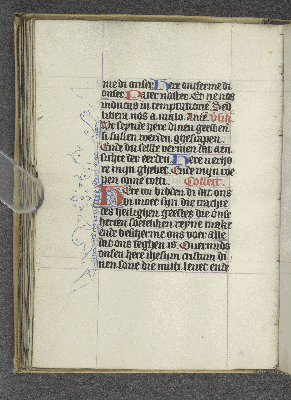 me di onser Here ontferme di
onser Pater noster Et ne nos
inducas in temptatione Sed
libera nos a malo
seynde here dinen gheest en
si sullen werden ghescapen
Ende du selte vernuwen dat aen
sichte der eerden Here verho
re mijn ghebet Ende mijn roe
pen come totti Collect
Here wi bidden di dat ons
in moet sijn die cracht
des heilighen gheestes die onse
herten suetelike reyne make
ende bescherme ons voer alle
dat ons teghen is Overmids
onsen here ihesum cristum di
nen sone die mitti levet ende